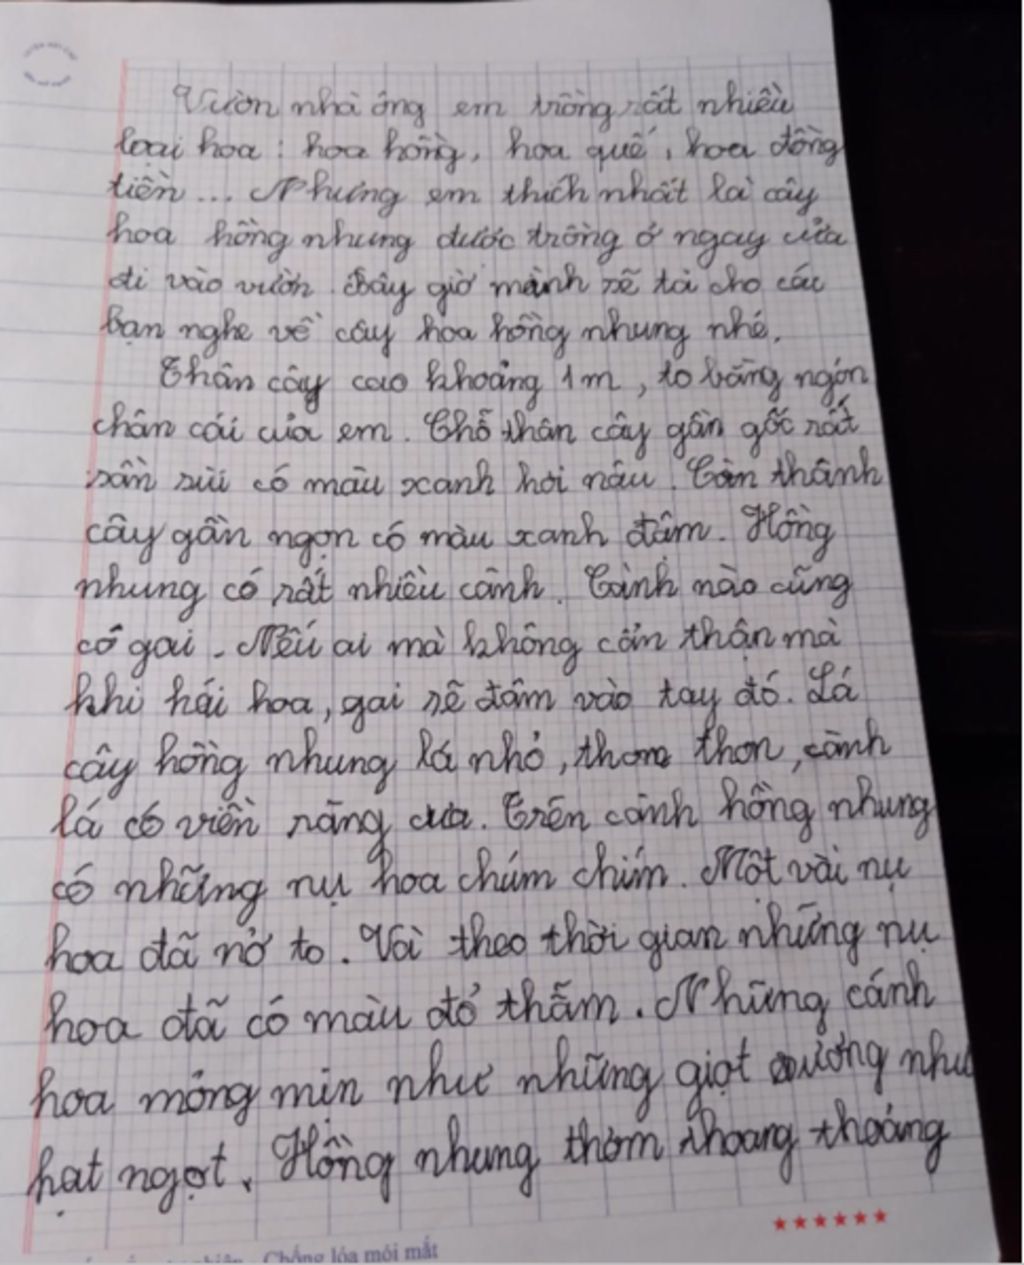 Vườn nhà ông em trồng rất nhiều
loại hoa : hoa hồng, hoa quế, hoa đồng
tiền... Nhưng em thích nhất là cây
hoa hồng nhung được trồng ở ngay cửa
đi vào vườn. Bây giờ mình sẽ tả cho các
bạn nghe về cây hoa hồng nhung nhé.
Thân cây cao khoảng 1m, to bằng ngón
chân cái của em. Chỗ thân cây gần gốc rất
sần sùi có màu xanh hơi nâu. Còn thânh
cây gần ngọn có màu xanh đậm. Hồng
nhung có rất nhiều cành. Cành nào cũng
có gai. Nếu ai mà không cẩn thận mà
khi hái hoa, gai sẽ đâm vào tay đó. Lá
cây hồng nhung lá nhỏ, thon thon, cành
lá có viền răng cưa. Trên cành hồng nhung
có những nụ hoa chúm chím. Một vài nụ
hoa đã nở to. Và theo thời gian những nụ
hoa đã có màu đỏ thẫm. Những cánh
hoa mỏng mịn như những giọt sương như
hạt ngọt. Hồng nhung thơm thoang thoảng
Chống lóa mỏi mắt